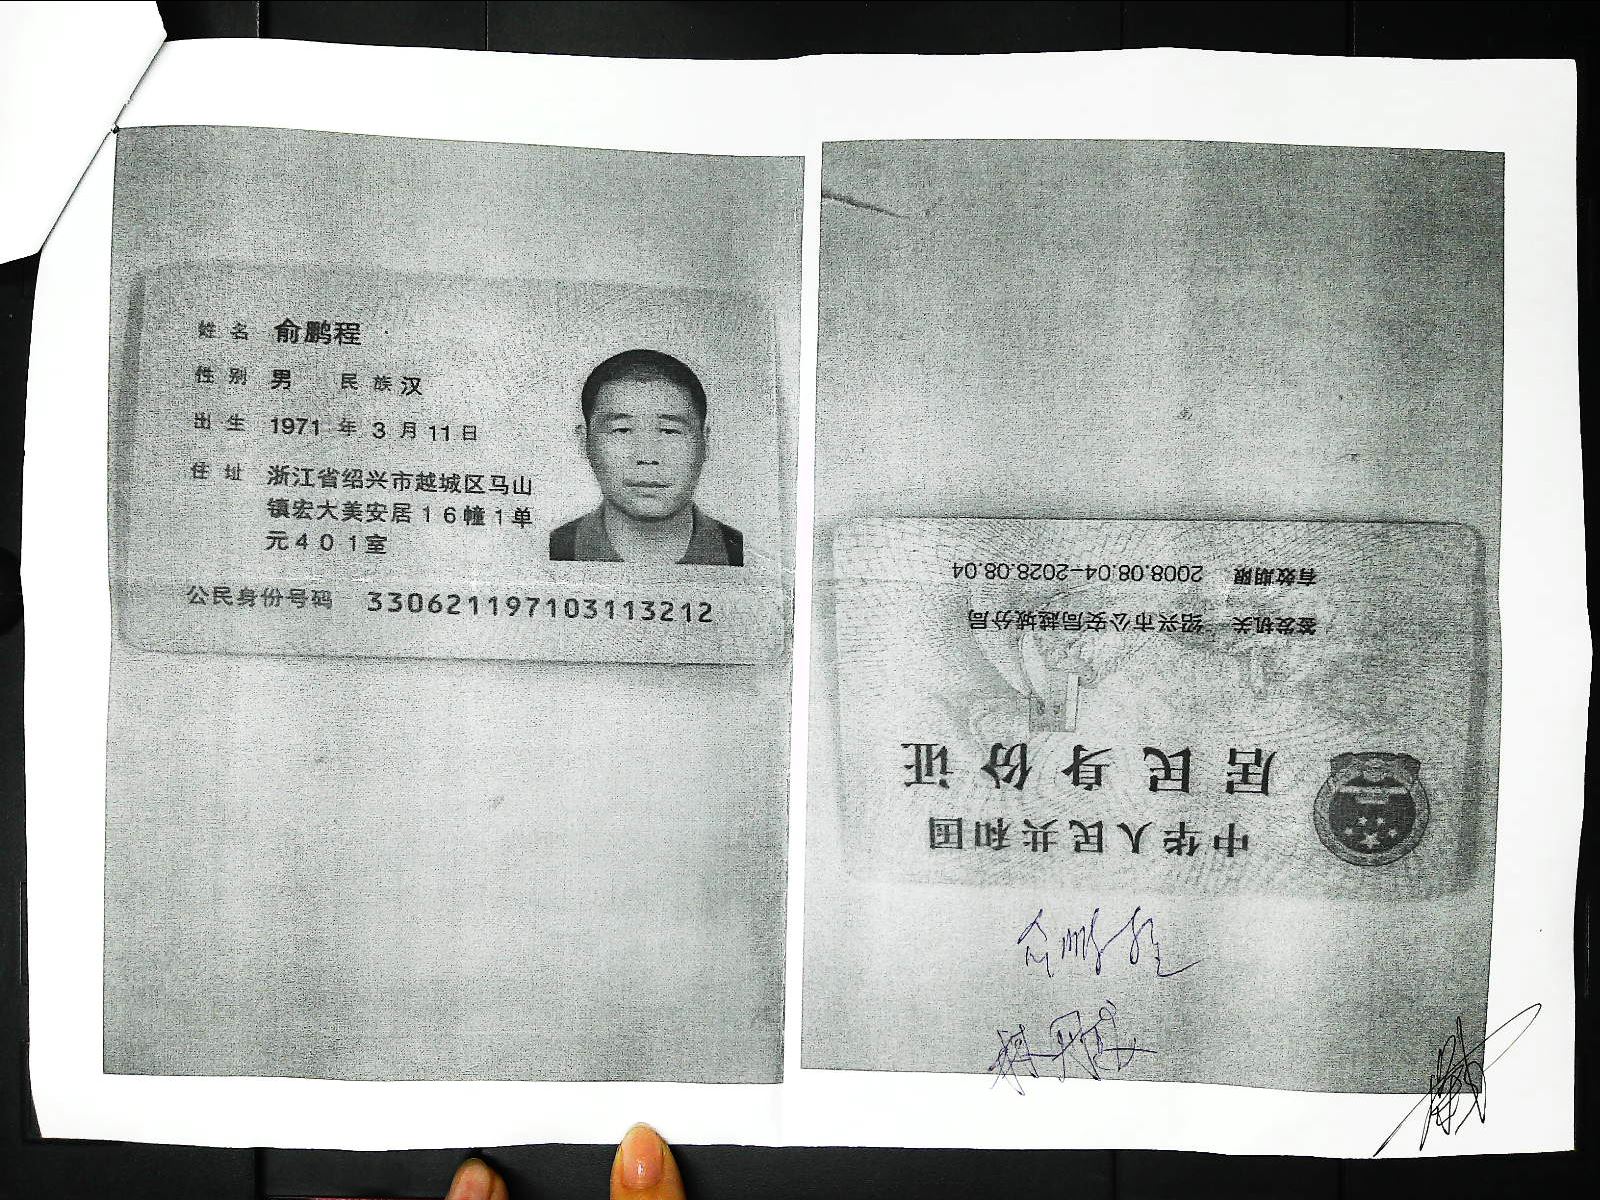 姓名 俞鹏程
性别 男 民族 汉
出生 1971 年 3 月 11 日
住址 浙江省绍兴市越城区马山
镇宏大美安居16幢1单
元401室
公民身份号码 330621197103113212
中华人民共和国
居民身份证
签发机关 绍兴市公安局越城分局
有效期限 2008.08.04-2028.08.04
俞鹏程